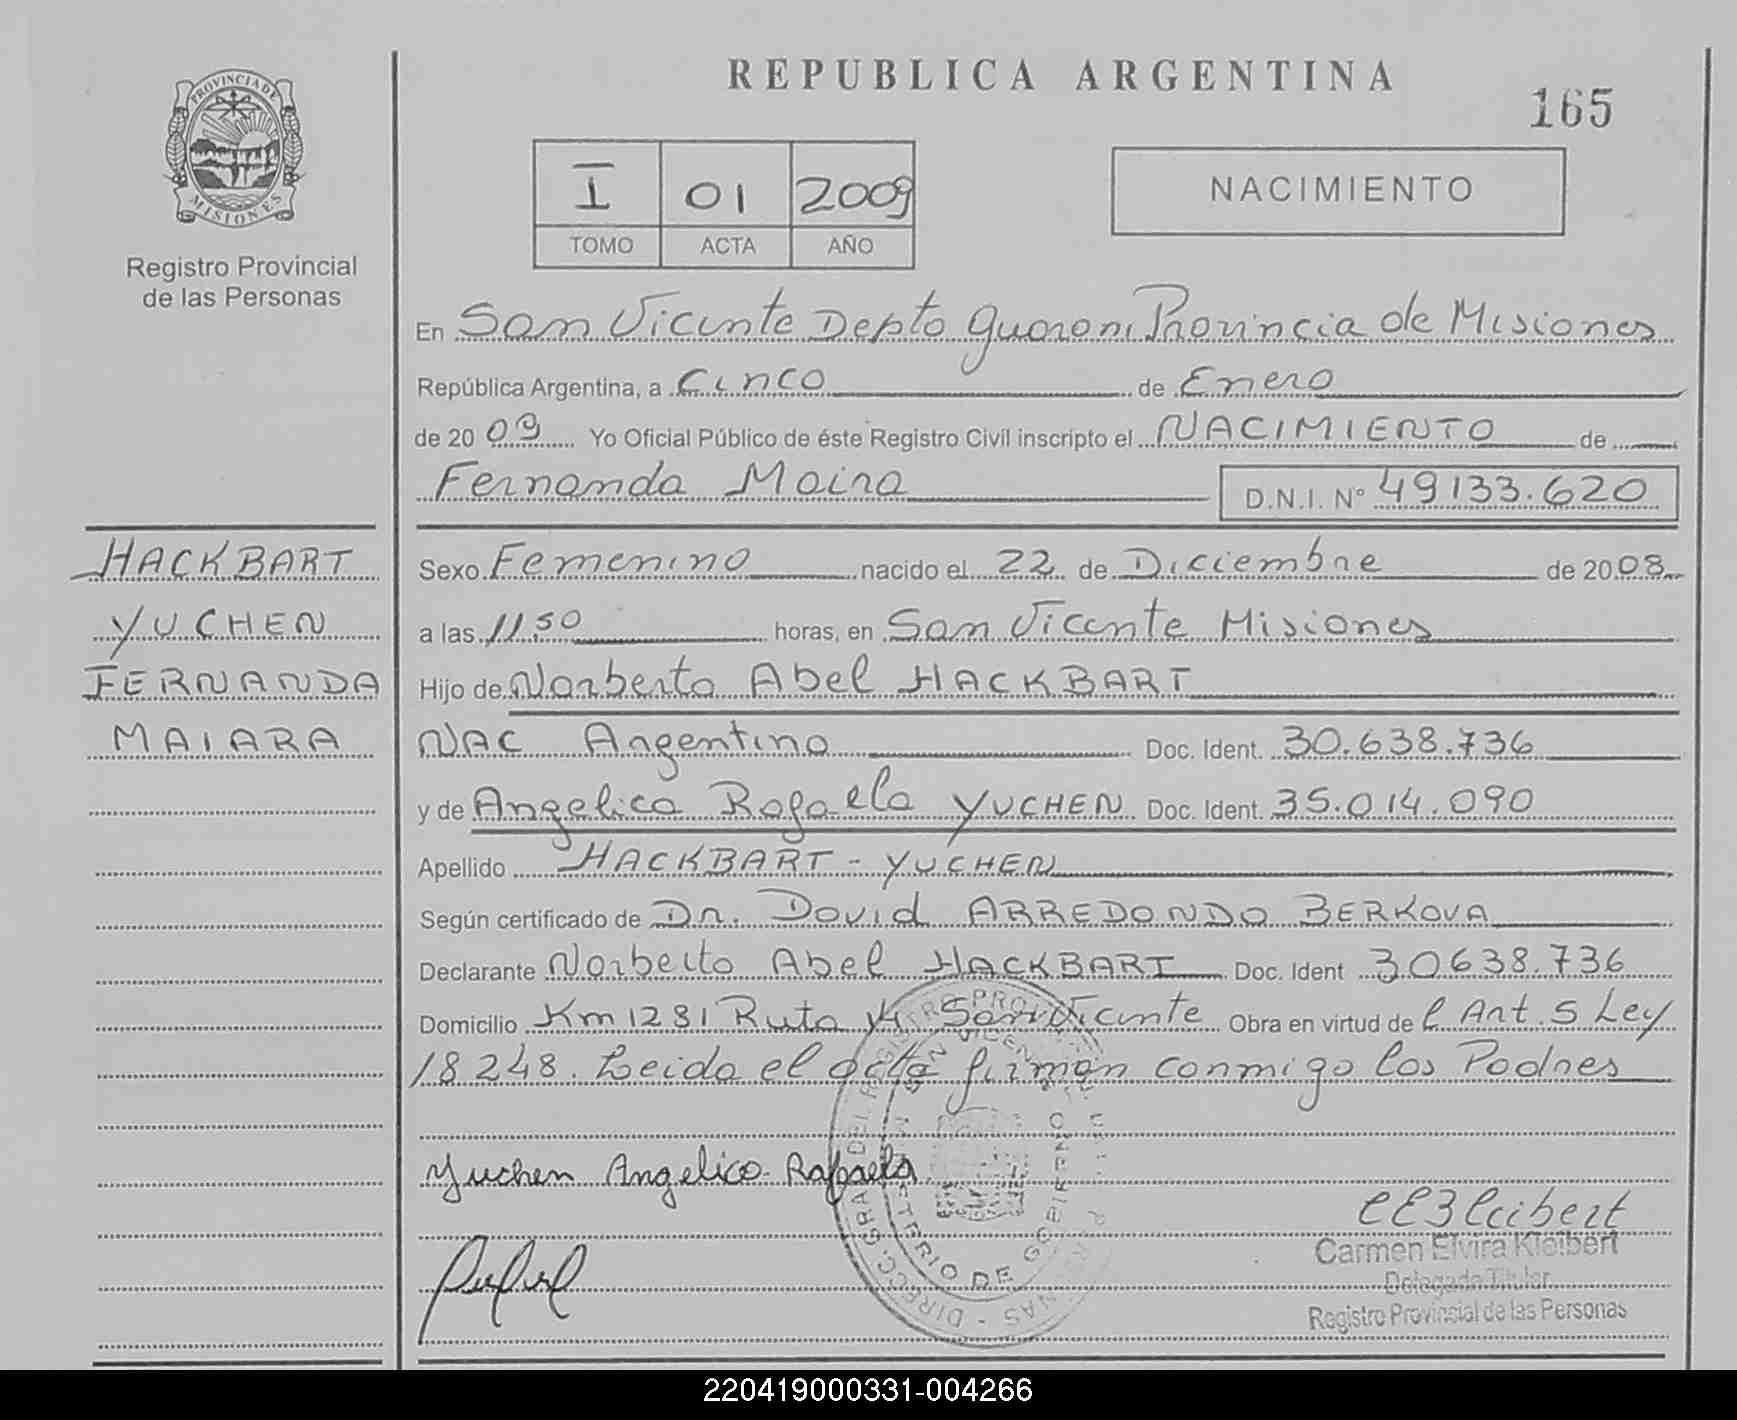 REPUBLICA ARGENTINA
165
PROVINCIA DE
MISIONES
Registro Provincial
de las Personas
I 01 2009
TOMO ACTA AÑO
NACIMIENTO
En San Vicente Depto Guarani Provincia de Misiones
República Argentina, a Cinco de Enero
de 2009 Yo Oficial Público de éste Registro Civil inscripto el NACIMIENTO de
Fernanda Maira D.N.I. Nº 49133.620
HACKBART
YUCHEN
FERNANDA
MAIARA
Sexo Femenino nacido el 22 de Diciembre de 2008
a las 11,50 horas, en San Vicente Misiones
Hijo de Norberto Abel HACKBART
NAC Argentino Doc. Ident. 30.638.736
y de Angelica Rafaela YUCHEN Doc. Ident. 35.014.090
Apellido HACKBART - YUCHEN
Según certificado de Dr. David ARREDONDO BERKOVA
Declarante Norberto Abel HACKBART Doc. Ident 30638.736
Domicilio Km 1281 Ruta 14 San Vicente Obra en virtud del Art. 5 Ley
18248. Leida el acta firman conmigo los Padres
Yuchen Angelica Rafaela
Carmen Elvira Kleibert
Delegada Titular
Registro Provincial de las Personas
220419000331-004266